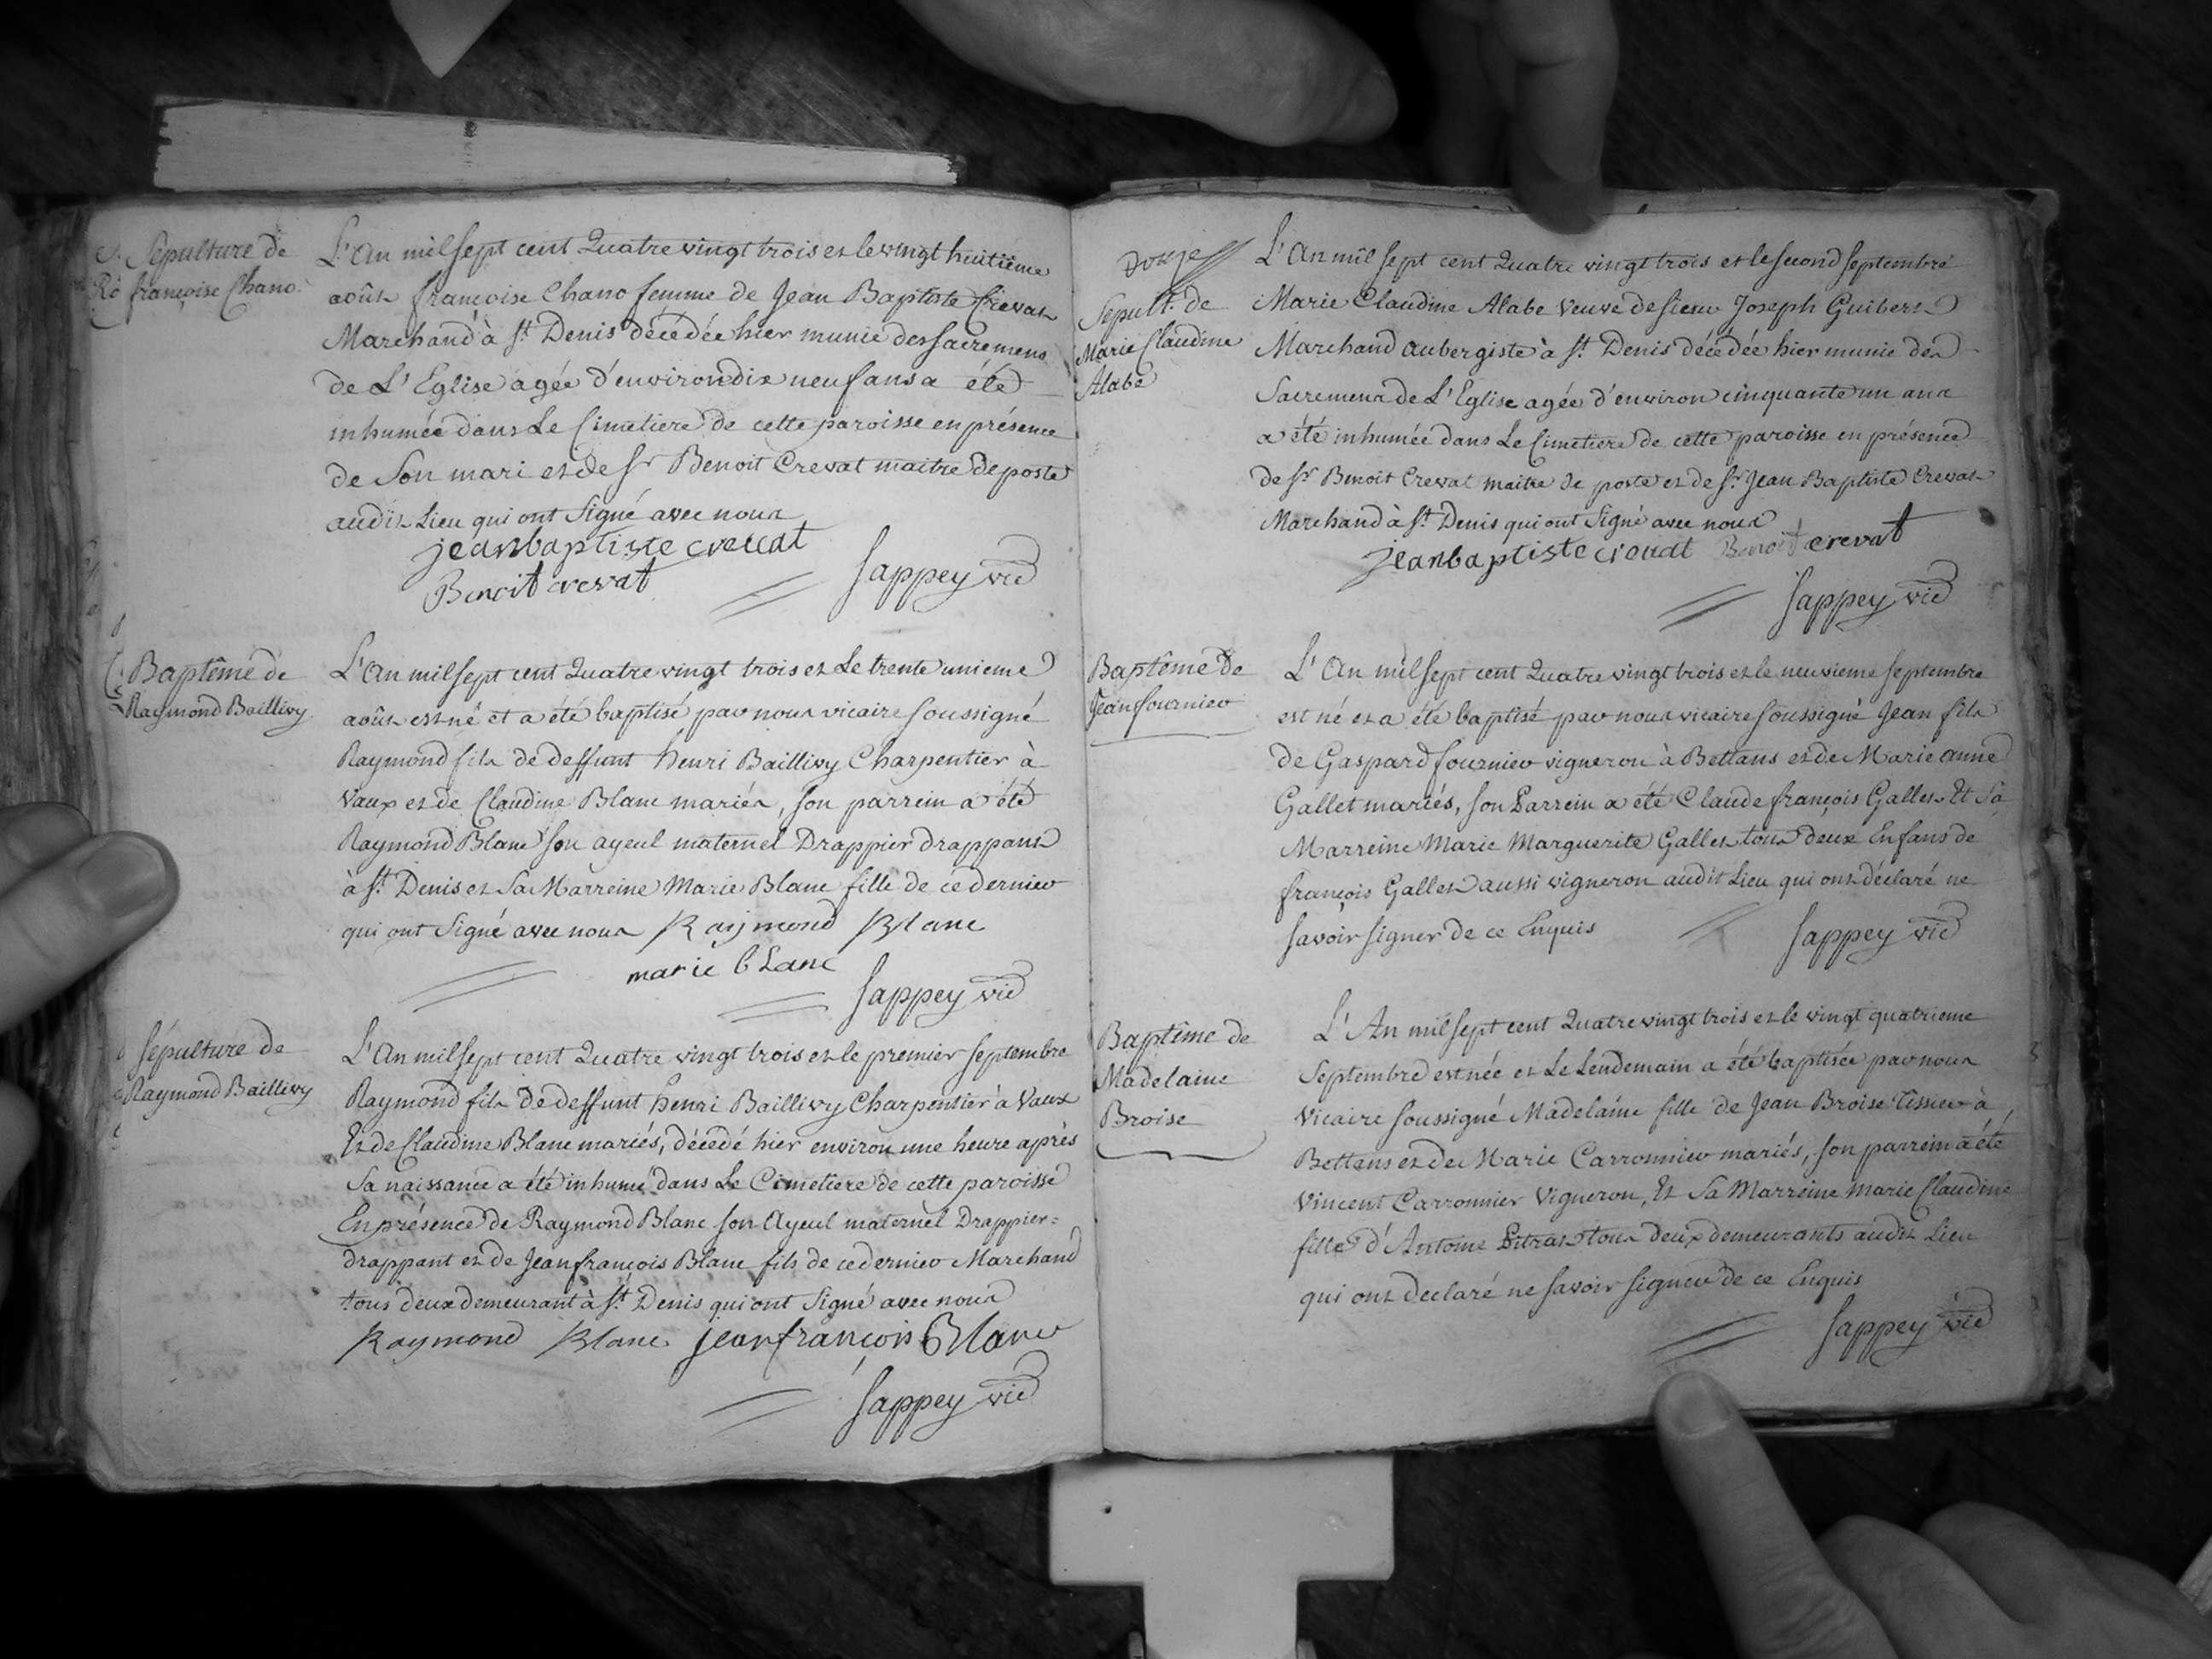 Sépulture de
françoise Chano
L'An milsept cent Quatre vingt trois et le vingt huitième
août françoise Chano femme de Jean Baptiste Crevat
Marchand à St Denis décédée hier munie des sacremens
de L'Eglise agée d'environ dix neuf ans a été
inhumée dans Le Cimetiere de cette paroisse en présence
de Son mari et de Sr Benoit Crevat maitre de poste
audit Lieu qui ont Signé avec nous
jeanbaptiste crevat
Benoit crevat Sappey vic
Baptême de
Raymond Baillivy
L'An milsept cent Quatre vingt trois et Le trente unieme
août est né et a été baptisé par nous vicaire soussigné
Raymond fils de deffunt henri Baillivy Charpentier à
Vaux et de Claudine Blanc mariés, son parrein a été
Raymond Blanc son ayeul maternel Drappier drappant
à St Denis et Sa Marreine Marie Blanc fille de ce dernier
qui ont Signé avec nous Raymond Blanc
marie bLanc
Sappey vic
Sépulture de
Raymond Baillivy
L'An milsept cent Quatre vingt trois et le premier septembre
Raymond fils de deffunt henri Baillivy Charpentier à Vaux
Et de Claudine Blanc mariés, décédé hier environ une heure après
Sa naissance a été inhumé dans Le Cimetiere de cette paroisse
En présence de Raymond Blanc son Ayeul maternel Drappier=
drappant et de Jean françois Blanc fils de ce dernier Marchand
tous deux demeurant à St Denis qui ont Signé avec nous
Raymond Blanc jean françois Blanc
Sappey vic
douze
Sepult. de
Marie Claudine
Alabe
L'An mil sept cent Quatre vingt trois et le second septembre
Marie Claudine Alabe Veuve de sieur Joseph Guibert
Marchand aubergiste à St Denis décédée hier munie des
Sacremens de L'Eglise agée d'environ cinquante un ans
a été inhumée dans Le Cimetiere de cette paroisse en présence
de Sr Benoit Crevat maitre de poste et de Sr Jean Baptiste Crevat
Marchand à St Denis qui ont Signé avec nous
jeanbaptiste crevat Benoit crevat
Sappey vic
Baptême de
Jean fournier
L'An milsept cent Quatre vingt trois et le neuvieme septembre
est né et a été baptisé par nous vicaire soussigné Jean fils
de Gaspard fournier vigneron à Bettans et de Marie anne
Gallet mariés, son Parrein a été Claude françois Gallet Et Sa
Marreine Marie Marguerite Gallet tous deux Enfans de
françois Gallet aussi vigneron audit Lieu qui ont déclaré ne
savoir signer de ce Enquis Sappey vic
Baptême de
Madelaine
Broise
L'An milsept cent Quatre vingt trois et le vingt quatrieme
Septembre est née et Le Lendemain a été baptisée par nous
Vicaire soussigné Madelaine fille de Jean Broise Tissier à
Bettans et de Marie Carronnier mariés, son parrein a été
Vincent Carronnier Vigneron, Et Sa Marreine marie Claudine
fille d'Antoine Pitrat tous deux demeurants audit Lieu
qui ont declaré ne savoir signer de ce Enquis
Sappey vic